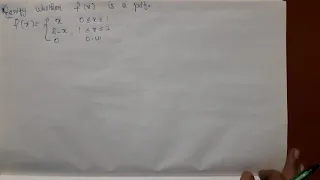 Verify whether f(x) is a p.d.f.
f(x) = { x 0≤x≤1
2-x, 1≤x≤2
0 o.w